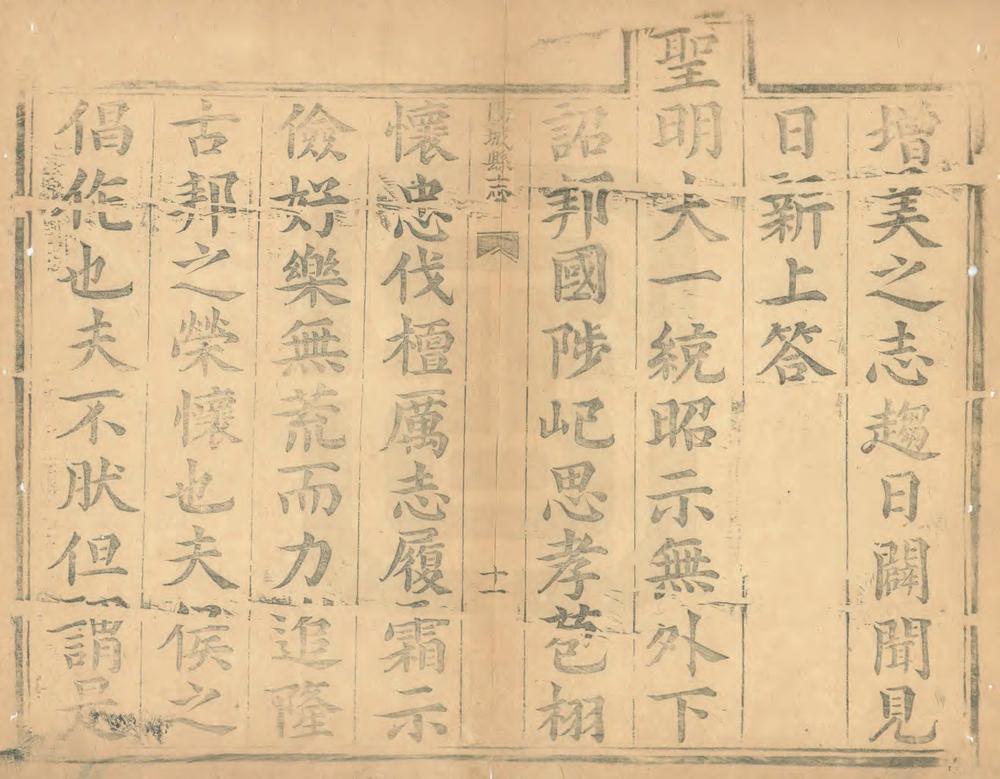 增美之志趨日闢聞見
日新上答
聖明大一統昭示無外下
詔邦國陟屺思孝苞栩
城縣志
十一
懷忠伐檀厲志履霜示
儉好樂無荒而力追隆
古邦之榮懷也夫侯之
倡作也夫不肰但謂是